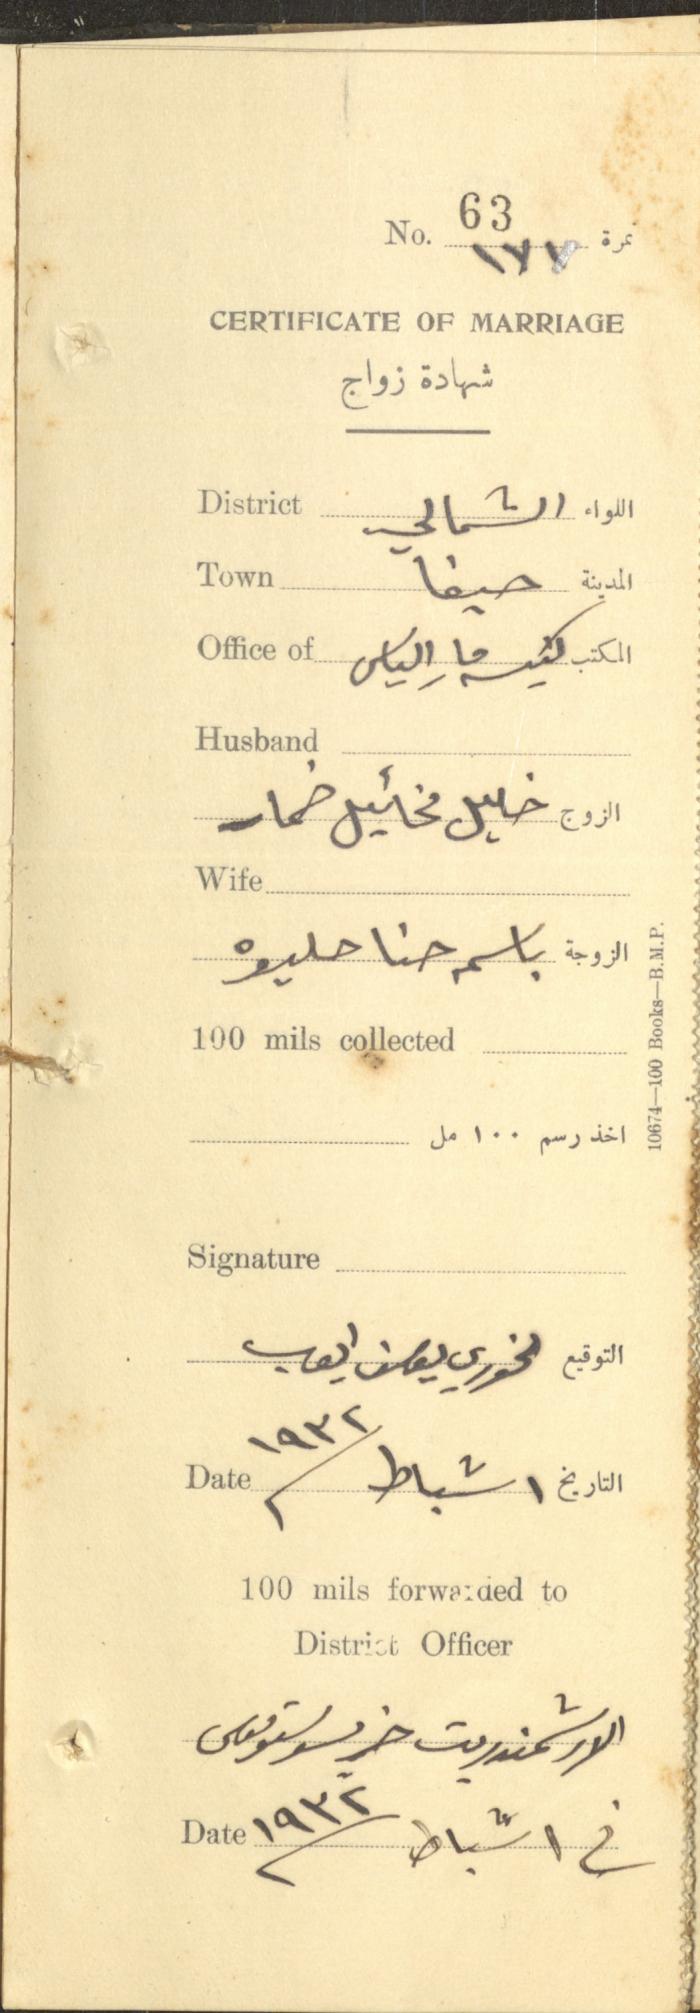 No. 63 نمرة
١٧٧
CERTIFICATE OF MARRIAGE
شهادة زواج
District الشمالي اللواء
Town حيفا المدينة
Office of كنيسه مار الياس المكتب
Husband
الزوج خليل مخائيل خمار
Wife
الزوجة باسمه حنا حليوه
100 mils collected
اخذ رسم ١٠٠ مل
Signature
التوقيع الخوري يوسف ايوب
Date ١ شباط ١٩٣٢ التاريخ
100 mils forwarded to
District Officer
الارشمندريت
Date في ١ شباط ١٩٣٢
10674—100 Books—B.M.P.